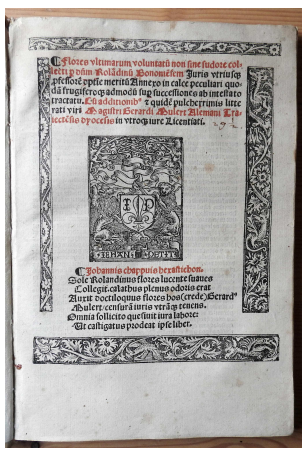 Flores vltimarum voluntatū non sine sudore col
lecti ꝑ dñm Rolādinū Bononiēsem Juris vtriusqꝫ
ꝓfessorē ꝓpe meritū Annexo in calce peculiari quo
dā frugiferoqꝫ admodū suꝑ successione ab intestato
tractatu. Cū additionibꝰ ⁊ quidē pulcherimis litte
rati viri Magistri Gerardi Mulert Alemani Tra
iectēsis dyocesis in vtroqꝫ iure Licentiati.
I P
IEHAN PETIT
Johannis chappuis hexastichon.
Sole Rolandinus flores lucente suaues
Collegit. calathus plenus odoris erat
Auxit doctiloquus flores hos (crede) Gerardꝰ
Mulert / censurā iuris vtrāqꝫ tenens.
Omnia sollicito quesiuit iura labore:
Ut castigatus prodeat ipse liber.